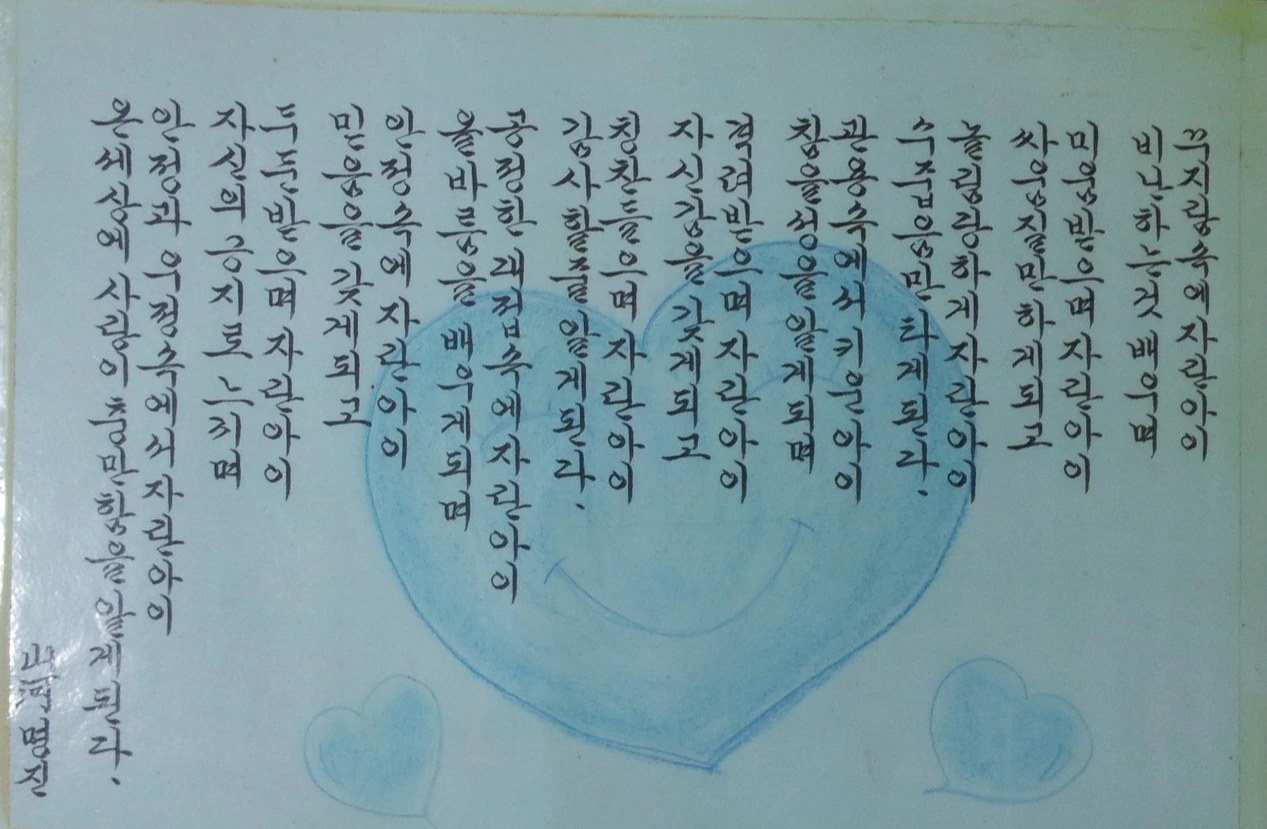 꾸지람속에 자란아이
비난하는것 배우며
미움받으며 자란아이
싸움질만 하게되고
놀림당하게 자란아이
수줍음만 타게된다.
관용속에서 키운아이
참을성을 알게되며
격려받으며 자란아이
자신감을 갖게되고
칭찬들으며 자란아이
감사할줄 알게된다.
공정한 대접속에 자란아이
올바름을 배우게되며
안정속에 자란아이
믿음을 갖게되고
두둔받으며 자란아이
자신의 긍지로 느끼며
안정과 우정속에서 자란아이
온세상에 사랑이 충만함을 알게된다.